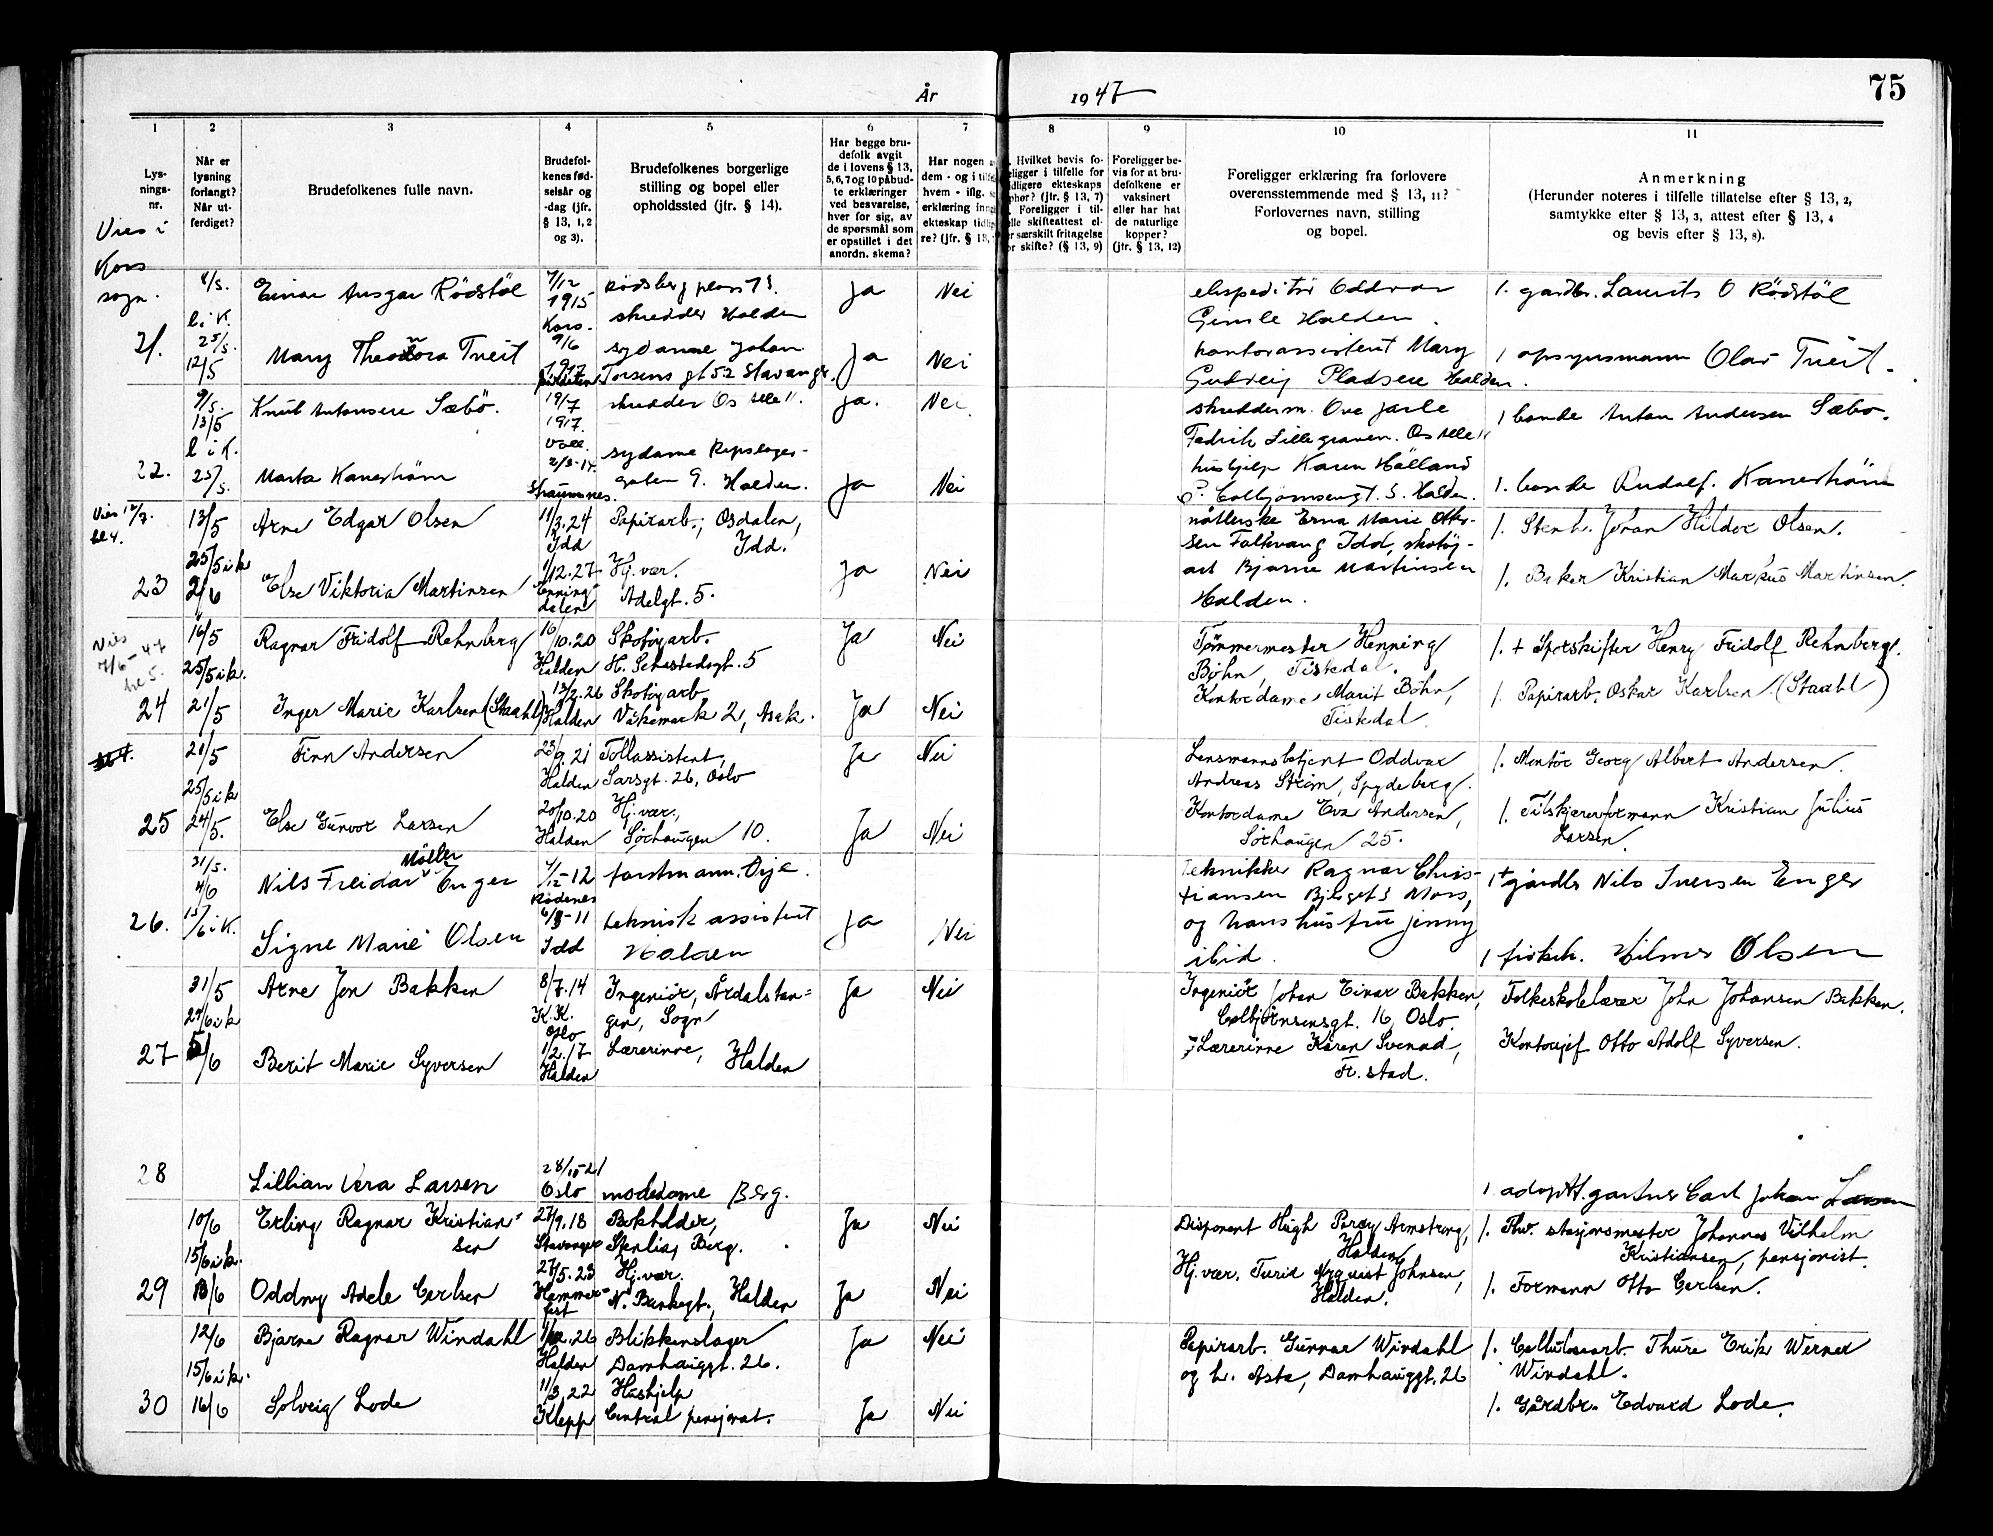 75
År 1947
1 2 3 4 5 6 7 8 9 10 11
Lys-
nings-
nr.
Når er
lysning
forlangt?
Når ut-
ferdiget?
Brudefolkenes fulle navn.
Brudefol-
kenes fød-
selsår og
-dag (jfr.
§ 13, 1, 2
og 3).
Brudefolkenes borgerlige
stilling og bopel eller
opholdssted (jfr. § 14).
Har begge bru-
defolk avgit
de i lovens § 13,
5, 6, 7 og 10 påbud-
te erklæringer
ved besvarelse,
hver for sig, av
de spørsmål som
er opstillet i det
anordn. skema?
Har nogen
dem - og i
hvem - iflg.
erklæring
ekteskap
re? (jfr. § 13,
Hvilket bevis fo-
religger i tilfelle for
tidligere ekteskaps
ophør? (jfr. § 13, 7)
Foreligger i til-
felle skifteattest el-
er særskilt fritagelse
for skifte? (§ 13, 9)
Foreligger be-
vis for at bru-
defolkene er
vaksinert
eller har hat
de naturlige
kopper?
(jfr. § 13, 12)
Foreligger erklæring fra forlovere
overensstemmende med § 13, 11?
Forlovernes navn, stilling
og bopel.
Anmerkning
(Herunder noteres i tilfelle tillatelse efter § 13, 2,
samtykke efter § 13, 3, attest efter § 13, 4
og bevis efter § 13, 8).
Vies i
Kors
sogn.
21.
8/5.
l i K.
25/5.
12/5
Einar Ansgar Rödstöl
7/12
1915
Kors-
Rödsberg plass 7 I.
skredder Halden
Ja Nei
ekspeditör Oddvar
Gimle Halden.
1. gardbr. Laurits O Rödstöl
Mary Theodora Tveit
9/6
1917
sydame Johan
Torsens gt 52 Stavanger.
Ja Nei
kontorassistent Mary
Gudveig Pladsen Halden.
1 opsynsmann Olav Tveit.
22.
9/5.
13/5
l i K.
25/5.
Knut Antonsen Sæbö.
19/7
1917.
Voll
skredder Os alle 11.
Ja. Nei
skredderm. Ove Jarle
Fredrik Lillegraven. Os alle 11
1 bonde Anton Andersen Sæbo.
Marta Kaneström
2/3-14.
Straumsnes.
sydame Repslager-
gaten 9. Halden.
Ja Nei
hushjelp Karen Hölland
P. Colbjørnsengt. 5. Halden.
1. bonde Rudolf. Kaneström
23
13/5
25/5 i k
2/6
Arne Edgar Olsen
11/3.24
Idd
Papirarb., Osdalen,
Idd.
nåtlerske Erna Marie Otte-
sen Folkvang Idd, skotöj-
arb Bjarne Martinsen
Halden.
1. Stenh. Johan Hildor Olsen.
Else Viktoria Martinsen
1/12.27
Enning-
dalen
Hj. vær.
Adelgt. 5.
Ja Nei
1. Baker Kristian Markus Martinsen.
Vies
7/6-47
kl 5.
24
16/5
25/5 i k.
21/5
Ragnar Fridolf Rehnberg
16/10.20
Halden
Skotøyarb.
H. Sehestedsgt. 5
Ja Nei
Tømmermester Henning
Bøhn, Tistedal.
1. + Sporskifter Henry Fridolf Rehnberg.
Inger Marie Karlsen (Staahl)
13/2.26
Halden
Skotøyarb
Vökemark 2, Asak.
Ja Nei
Kontordame Marit Bøhn,
Tistedal.
1. Papirarb. Oskar Karlsen (Staahl)
25
21/5
25/5 i k
24/5.
Finn Andersen
23/9.21
Halden
Tollassistent,
Sarsgt. 26, Oslo
Ja Nei
Lensmannsbetjent Oddvar
Andreas Strøm, Spydeberg.
1. Montør Georg Albert Andersen.
Else Gunvor Larsen
20/10.20
Halden
Hj. vær,
Sørhaugen 10.
Ja Nei
Kontordame Eva Andersen,
Sörhaugen 25.
1. Tilskjærerformann Kristian Julius
Larsen.
26.
31/5.
4/6
15/6 i K.
Nils Freidar Möller Enger
7/12-12
Rødenes
forstmann. Ørje.
Tekniker Ragnar Chris-
tiansen Bjelgets Moss,
og hans hustru Jenny
ibid.
1 + gårdbr Nils Iversen Enger
Signe Marie Olsen
6/3-11
Idd
teknisk assistent
Halden
Ja Nei
1 fiskeh. Hilmer Olsen
27
31/5
29/6 i k
5/6
Arne Jon Bakken
8/7.14
K.K.
Oslo
Ingeniør, Årdalstan-
gen, Sogn
Ja Nei
Ingeniör Johan Einar Bakken,
Colbjørnsensgt. 16, Oslo.
Folkeskolelærer John Johansen Bakken.
Berit Marie Syversen
1/2.17
Halden
Lærerinne, Halden
Lærerinne Karen Svenad,
Fr. stad.
Kontorsjef Otto Adolf Syversen.
28
Lillian Vera Larsen
28/10-21
Oslo
motedame Berg.
1 adoptf. gartner Carl Johan Larsen
29
10/6
15/6 i k.
18/6
Erling Ragnar Kristian-
sen
27/9.18
Stavanger
Bokholder,
Stenlia, Berg.
Ja Nei
Disponent Hugh Percy Armstrong,
Halden
1. Fhv. stasjonsmester Johannes Vilhelm
Kristiansen, pensjonist.
Oddny Adele Carlsen
27/5.23
Hammer-
fest
Hj. vær.
N. Bankegt., Halden
Ja Nei
Hj. vær. Turid Nyquist Johnsen,
Halden.
1. Formann Otto Carlsen.
30
12/6
15/6 i k.
16/6
Bjarne Ragnar Windahl
Halden
Blikkenslager
Damhauggt. 26.
Ja Nei
Papirarb. Gunnar Windahl
og h. Asta, Damhauggt. 26
1. Cellulosearb. Thure Erik Werner
Windahl.
Solveig Lode
11/3.22
Klepp
Hushjelp
Central pensjonat.
Ja Nei
1. Gårdbr. Edvard Lode.